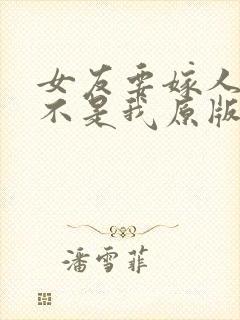 女友要嫁人
不是我原版
潘雪菲